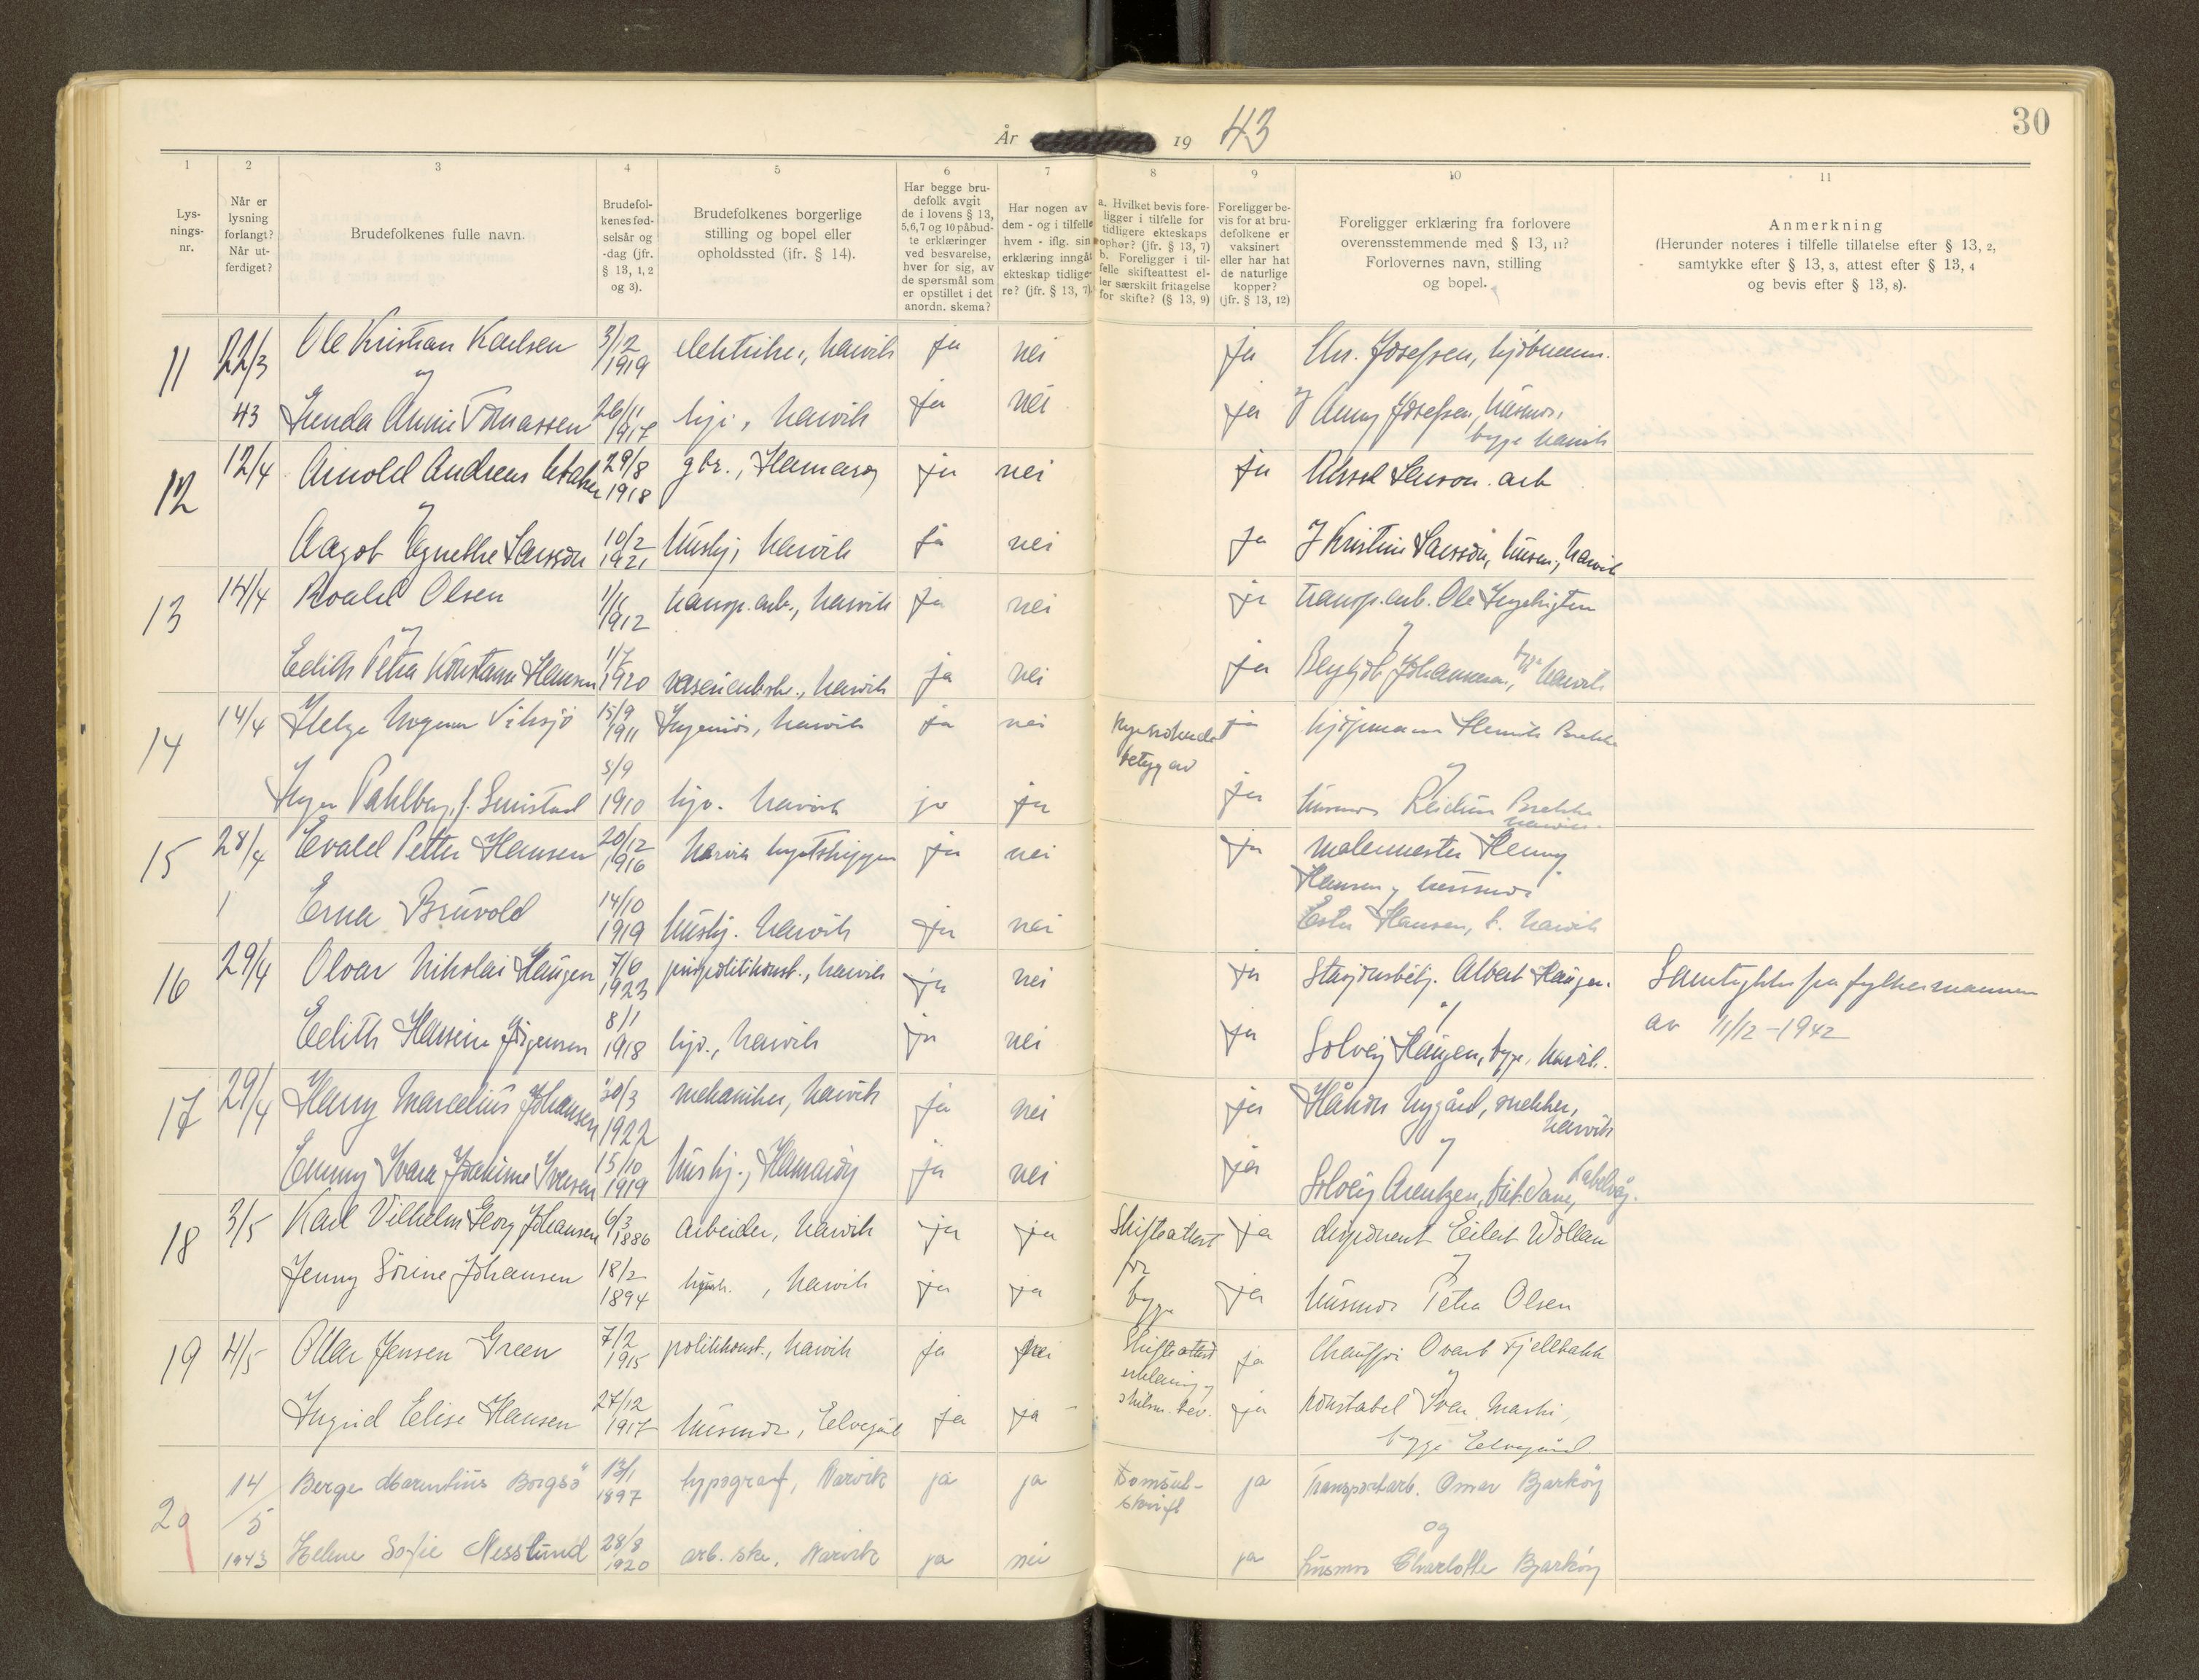 30
År 19 43
1 2 3 4 5 6 7 8 9 10 11
Lys-
nings-
nr.
Når er
lysning
forlangt?
Når ut-
ferdiget?
Brudefolkenes fulle navn.
Brudefol-
kenes fød-
selsår og
-dag (jfr.
§ 13, 1, 2
og 3).
Brudefolkenes borgerlige
stilling og bopel eller
opholdssted (jfr. § 14).
Har begge bru-
defolk avgit
de i lovens § 13,
5, 6, 7 og 10 påbud-
te erklæringer
ved besvarelse,
hver for sig, av
de spørsmål som
er opstillet i det
anordn. skema?
Har nogen av
dem - og i tilfelle
hvem - iflg. sin
erklæring inngåt
ekteskap tidlige-
re? (jfr. § 13, 7).
a. Hvilket bevis fore-
ligger i tilfelle for
tidligere ekteskaps
ophør? (jfr. § 13, 7)
b. Foreligger i til-
felle skifteattest el-
ler særskilt fritagelse
for skifte? (§ 13, 9)
Foreligger be-
vis for at bru-
defolkene er
vaksinert
eller har hat
de naturlige
kopper?
(jfr. § 13, 12)
Foreligger erklæring fra forlovere
overensstemmende med § 13, 11?
Forlovernes navn, stilling
og bopel.
Anmerkning
(Herunder noteres i tilfelle tillatelse efter § 13, 2,
samtykke efter § 13, 3, attest efter § 13, 4
og bevis efter § 13, 8).
11 22/3 Ole Kristian Karlsen 3/12 1919 elektriker, Narvik ja nei ja Chr. Josefsen, kjøbmann.
og
43 Annie Tomassen 26/11 1917 hjv., Narvik ja nei ja Anny Josefsen, husmor,
begge Narvik
12 12/4 Arnold Andreas 29/8 1918 gbr., Hamarøy ja nei ja arb
og
Aagot Agnethe Larsson 10/2 1921 hushj, Narvik ja nei ja Kristine Larsson, husm., Narvik
13 14/4 Roald Olsen 1912 transp.arb., Narvik ja nei ja transp.arb. Ole
og
Edith Petra Konstanse Hansen 1/7 1920 Narvik ja nei ja Johannesen, begge Narvik
14 14/4 Helge Vihsjø 15/9 1911 Ingeniør, Narvik ja nei ja kjøpmann Henrik Brekke
og
Inger Dahlberg, f. 5/9 1910 hjv. Narvik ja ja ja husmor Reidun Brekke
Narvik.
15 28/4 Evald Petter Hansen 20/12 1916 Narvik ja nei ja malermester Henny
Hansen og husmor
Erna Bruvold 14/10 1919 hushj. Narvik ja nei Ester Hansen, b. Narvik
16 29/4 Olvar Nikolai Haugen 7/6 1923 politikonst., Narvik ja nei ja stasjonsbetj. Albert Haugen. Samtykke fra fylkesmannen
og
av 11/12-1942
Edith Hansine Jørgensen 8/1 1918 hjv., Narvik ja nei ja Solveig Haugen, begge Narvik.
17 29/4 Harry Marcelius Johansen 30/3 1922 mekaniker, Narvik ja nei ja Håkon Nygård, snekker,
Narvik
og
Emmy Ivara Joakime Iversen 15/10 1919 hushj., Hamarøy ja nei ja Solveig Arentzen,
18 3/5 Karl Vilhelm Georg Johansen 6/3 1886 arbeider, Narvik ja ja Skifteattest ja disponent Eilert Wollan
for
og
Jenny Sørine Johansen 18/2 1894 Narvik ja ja begge ja husmor Petra Olsen
19 4/5 Ottar Jensen Green 7/2 1915 politikonst., Narvik ja nei Skifteattest ja Chauffør Ovart Fjellbakk
erklæring og
og
Ingrid Elise Hansen 27/12 1917 husmor, Elvegård ja ja skilsm. bev. ja konstabel
begge Elvegård
20 14/5 Berge Marentius Borgsø 13/1 1897 typograf, Narvik ja ja Domsut- ja Transportarb. Omar Bjarkøy
skrift
og
1943 Helene Sofie Nesslund 28/8 1920 arb. ske, Narvik ja nei ja husmor Charlotte Bjarkøy